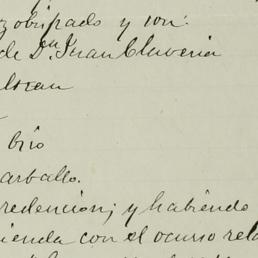 zobispado y son:
de Dn Juan Claveria
bio
arballo.
redencion; y habiendo
ienda con el ocurso rela